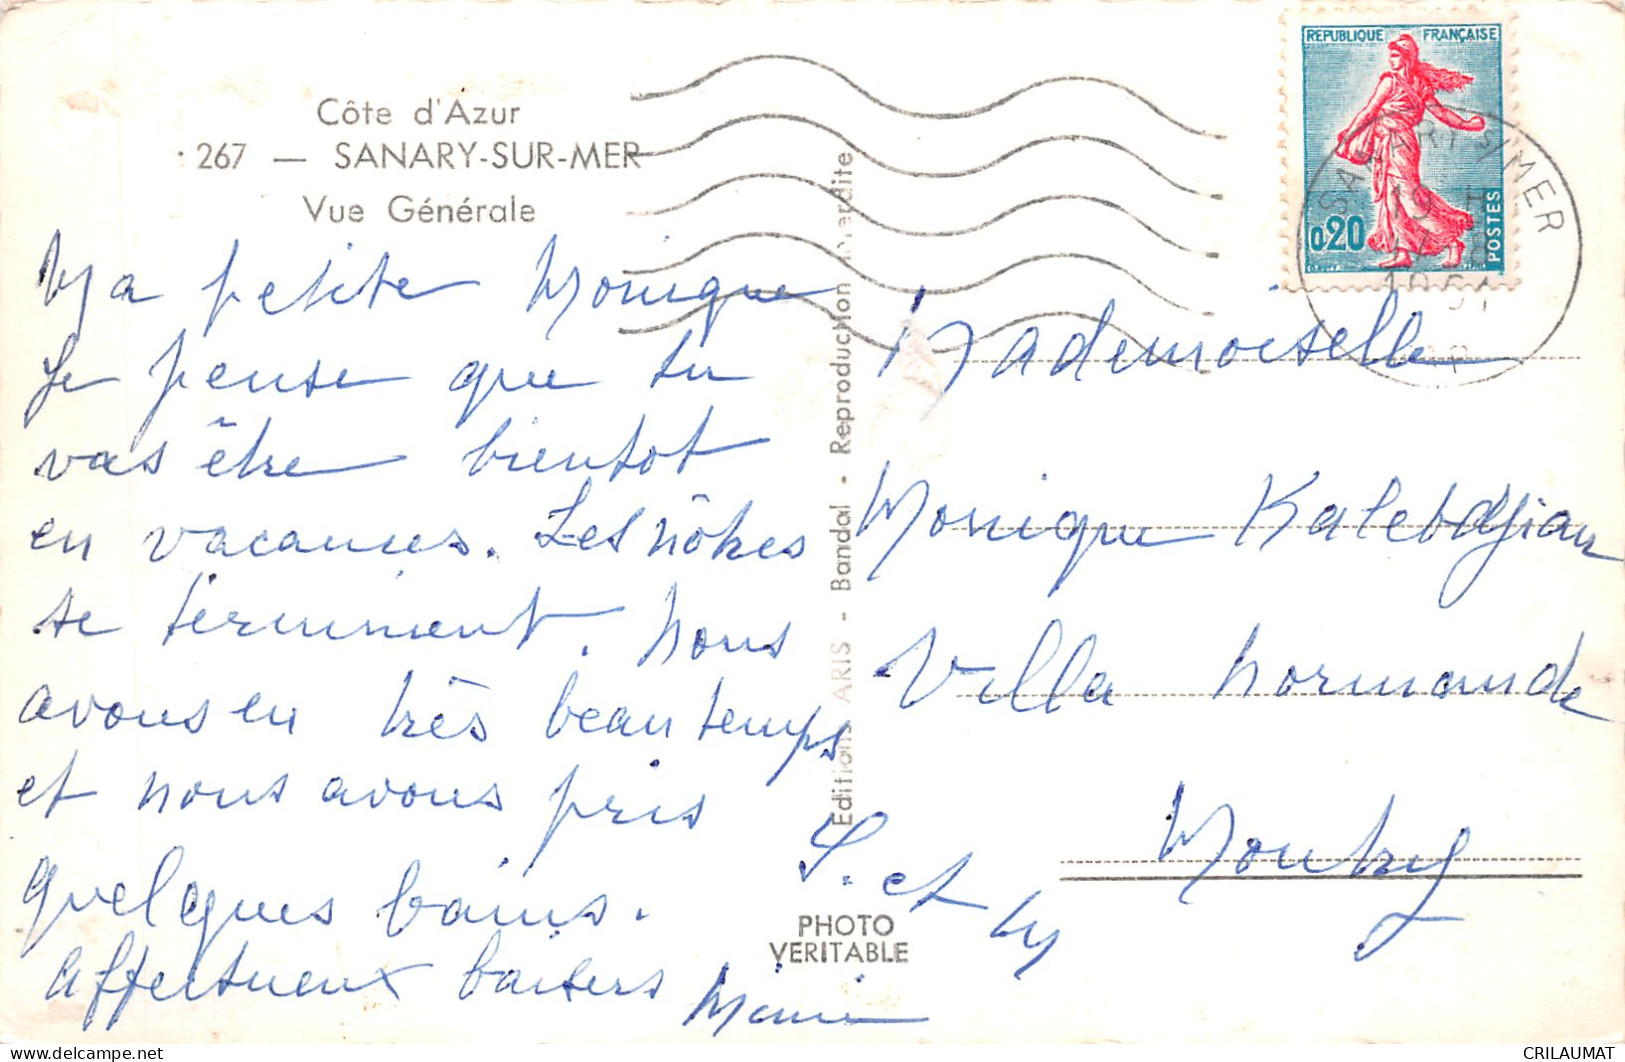 Côte d'Azur
267 — SANARY-SUR-MER
Vue Générale
Ma petite Monique
Je pense que tu
vas être bientot
en vacances. Les nôtres
se terminent. Nous
avons eu très beau temps
et nous avons pris
quelques bains.
Affectueux baisers
Editions ARIS - Bandol - Reproduction interdite
PHOTO
VERITABLE
REPUBLIQUE FRANÇAISE
0,20
POSTES
SANARY S/MER
19 H
1961
VAR
Mademoiselle
Monique Kalebdjian
Villa normande
S. et
CRILAUMAT